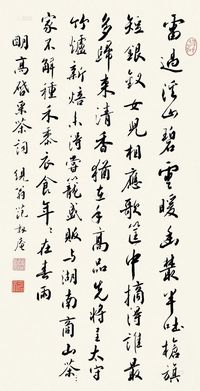 雷過溪山碧雲暖幽叢半吐槍旗
短銀釵女兒相應歌筐中摘得誰最
多歸來清香猶在手高品先將呈太守
竹爐新焙未得嘗籠盛販與湖南商山茶
家不解種禾黍衣食年〻在春雨
明高啓采茶詞 範叔庵